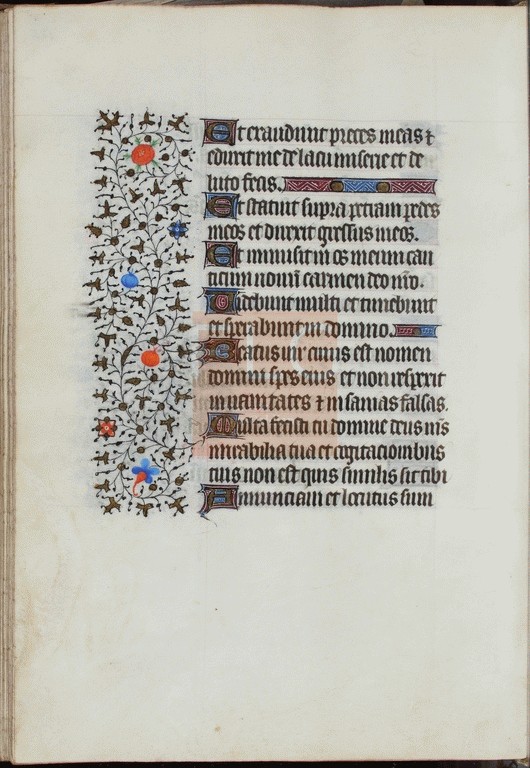 Et exaudivit preces meas ⁊
eduxit me de lacu miserie et de
luto fecis.
Et statuit supra petram pedes
meos et direxit gressus meos.
Et immisit in os meum can
ticum novum carmen deo nr̄o.
Videbunt multi et timebunt
et sperabunt in domino.
Beatus vir cuius est nomen
domini spes eius et non respexit
in vanitates ⁊ insanias falsas.
Multa fecisti tu domine deus m̄s
mirabilia tua et cogitacionibus
tuis non est quis similis sit tibi
Annunciavi et locutus sum